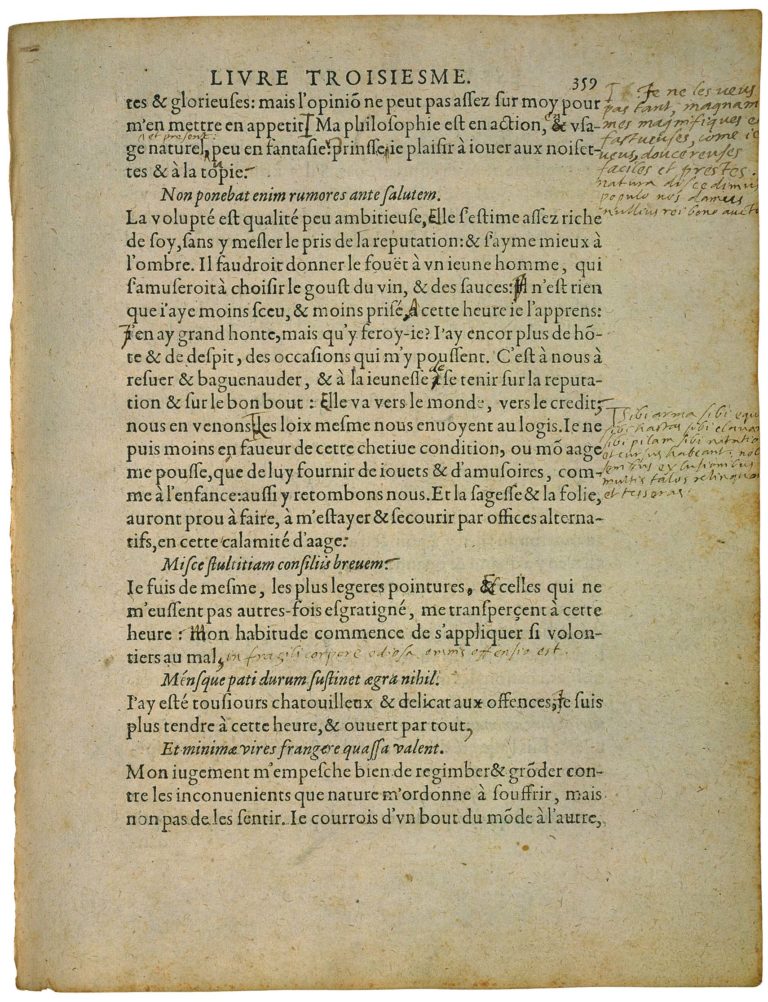 LIVRE TROISIESME. 359
tes & glorieuses: mais l'opiniō ne peut pas assez sur moy pour
m'en mettre en appetit. Ma philosophie est en action, & vsa-
et present:
ge naturel, peu en fantasie. Prinsse-ie plaisir à iouer aux noiset-
tes & à la topie.
Non ponebat enim rumores ante salutem.
La volupté est qualité peu ambitieuse, Elle s'estime assez riche
de soy, sans y mesler le pris de la reputation: & s'ayme mieux à
l'ombre. Il faudroit donner le fouët à vn ieune homme, qui
s'amuseroit à choisir le goust du vin, & des sauces: Il n'est rien
que i'aye moins sceu, & moins prisé, A cette heure ie l'apprens:
I'en ay grand honte, mais qu'y feroy-ie? I'ay encor plus de hō-
te & de despit, des occasions qui m'y poussent. C'est à nous à
resuer & baguenauder, & à la ieunesse de se tenir sur la reputa-
tion & sur le bon bout: Elle va vers le monde, vers le credit,
nous en venons. Les loix mesme nous enuoyent au logis. Ie ne
puis moins en faueur de cette chetiue condition, ou mō aage
me pousse, que de luy fournir de iouets & d'amusoires, com-
me à l'enfance: aussi y retombons nous. Et la sagesse & la folie,
auront prou à faire, à m'estayer & secourir par offices alterna-
tifs, en cette calamité d'aage.
Misce stultitiam consiliis breuem.
Ie fuis de mesme, les plus legeres pointures, & celles qui ne
m'eussent pas autres-fois esgratigné, me transperçent à cette
heure: Mon habitude commence de s'appliquer si volon-
tiers au mal, in fragili corpore odiosa omnis offensio est.
Ménsque pati durum sustinet ægra nihil.
I'ay esté tousiours chatouilleux & delicat aux offences, Ie suis
plus tendre à cette heure, & ouuert par tout,
Et minimæ vires frangere quassa valent.
Mon iugement m'empesche bien de regimber & grōder con-
tre les inconuenients que nature m'ordonne à souffrir, mais
non pas de les sentir. Ie courrois d'vn bout du mōde à l'autre,
Je ne les veus
pas tant, magnani
mes magnifiques e
fastueuses, come ie
veus, doucereuses
faciles et prestes.
natura discedimus
populo nos damus
nullius rei bono aucto
Sibi arma sibi equ
sibi hastas sibi clauam
sibi pilam sibi natatio
et cursus habeant: nob
senibus ex lusionibus
multis talos relinquan
et tesseras.